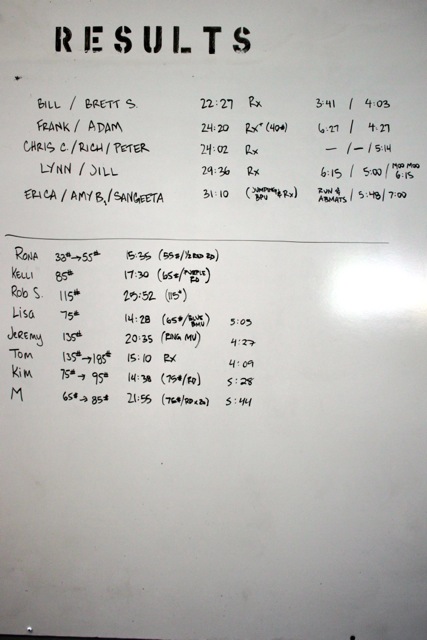 RESULTS
BILL / BRETT S. 22:27 Rx 3:41 / 4:03
FRANK / ADAM 24:20 Rx+ (40#) 6:27 / 4:27
CHRIS C. / RICH / PETER 24:02 Rx — / — / 5:14
LYNN / JILL 29:36 Rx 6:15 / 5:00 / 6:15
ERICA / AMY B. / SANGEETA 31:10 (JUMPING BPU & Rx) RUN & ABMATS / 5:48 / 7:00
RONA 33# → 55# 15:35 (55#/½ RED RD)
KELLI 85# 17:30 (65#/PURPLE RD)
ROB S. 115# 25:52 (115#)
LISA 75# 14:28 (65#/BLUE BMU) 5:03
JEREMY 135# 20:35 (RING MU) 4:27
TOM 135# → 185# 15:10 RX 4:09
KIM 75# → 95# 14:38 (75#/RD) 5:28
M 65# → 85# 21:55 5:44